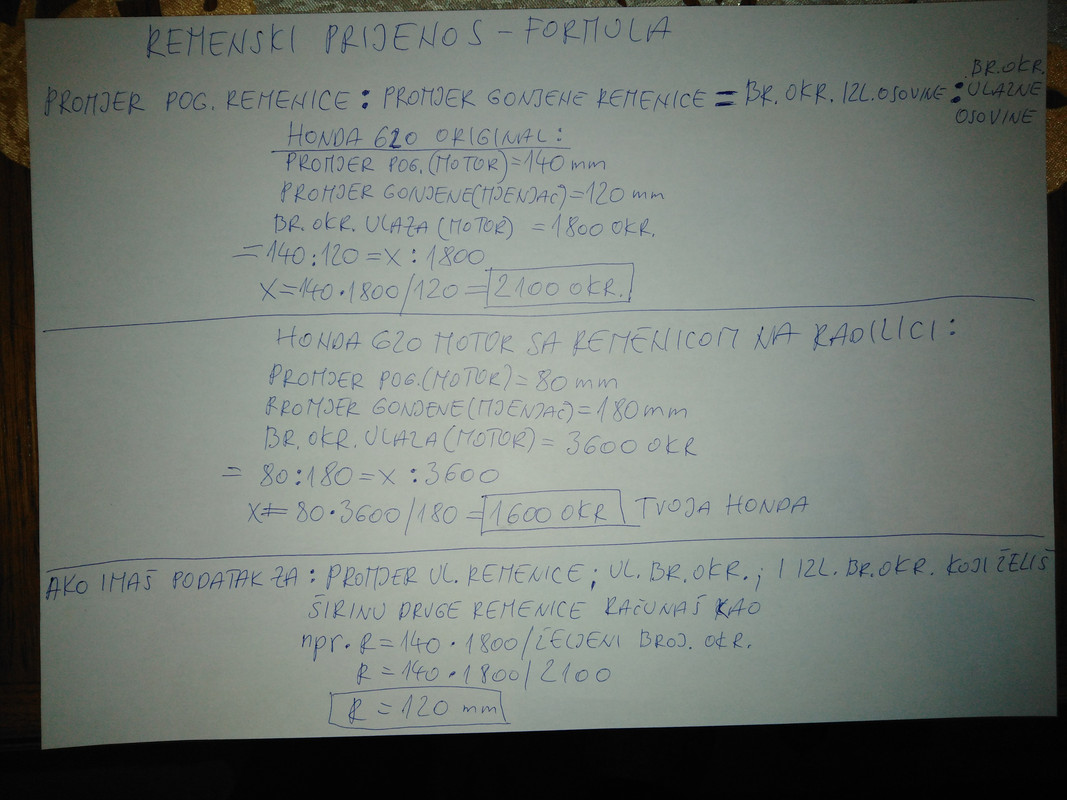 REMENSKI PRIJENOS - FORMULA
PROMJER POG. REMENICE : PROMJER GONJENE REMENICE = BR. OKR. IZL. OSOVINE : BR. OKR. ULAZNE OSOVINE
HONDA 620 ORIGINAL:
PROMJER POG. (MOTOR) = 140 mm
PROMJER GONJENE (MJENJAČ) = 120 mm
BR. OKR. ULAZA (MOTOR) = 1800 OKR.
= 140 : 120 = X : 1800
X = 140 · 1800 / 120 = 2100 OKR.
HONDA 620 MOTOR SA REMENICOM NA RADILICI :
PROMJER POG. (MOTOR) = 80 mm
PROMJER GONJENE (MJENJAČ) = 180 mm
BR. OKR. ULAZA (MOTOR) = 3600 OKR
= 80 : 180 = X : 3600
X = 80 · 3600 / 180 = 1600 OKR TVOJA HONDA
AKO IMAŠ PODATAK ZA : PROMJER UL. REMENICE ; UL. BR. OKR. ; I IZL. BR. OKR. KOJI ŽELIŠ
ŠIRINU DRUGE REMENICE RAČUNAŠ KAO
npr. R = 140 · 1800 / ŽELJENI BROJ. OKR.
R = 140 · 1800 / 2100
R = 120 mm